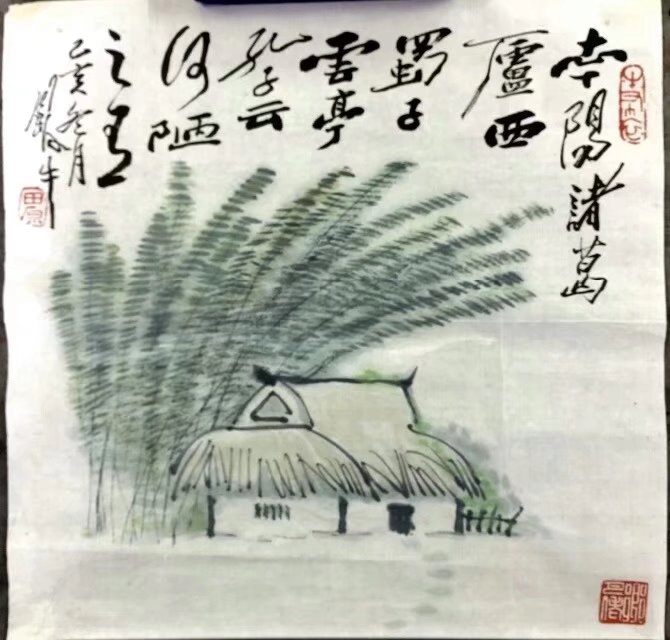 南陽諸葛
廬西
蜀子
雲亭
孔子云
何陋
之有
己亥冬月
牛